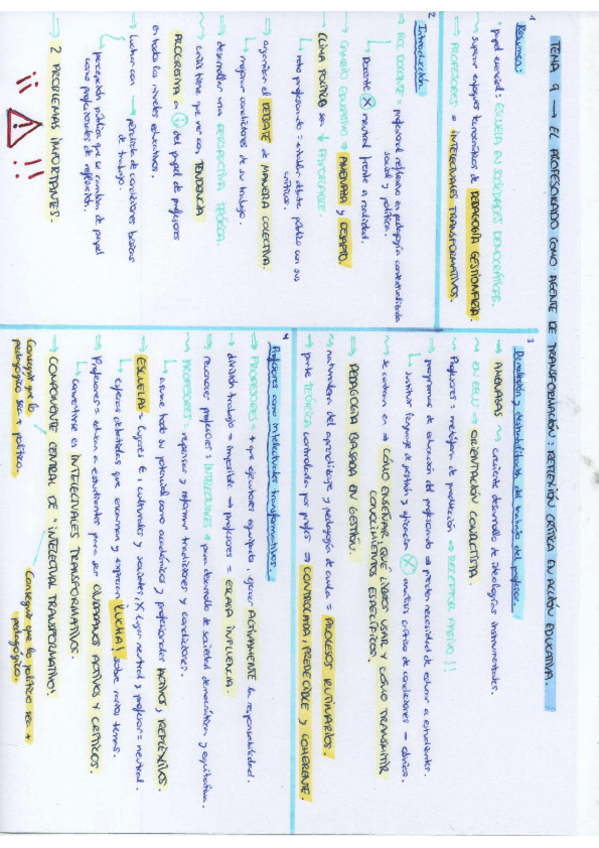 TEMA 9 → EL PROFESORADO COMO AGENTE DE TRANSFORMACIÓN: REFLEXIÓN CRÍTICA EN ACCIÓN EDUCATIVA.
1
Resumen:
papel esencial: ESCUELA EN SOCIEDADES DEMOCRÁTICAS.
superar enfoques tecnocráticos de PEDAGOGÍA GESTIONARIA.
PROFESORES = INTELECTUALES TRANSFORMATIVOS.
2
Introducción:
ROL DOCENTE = profesional reflexivo en pedagogía contextualizada
social y política.
Docente X neutral frente a realidad.
CAMBIO EDUCATIVO → AMENAZA y DESAFÍO.
CLIMA POLÍTICO ser ↓ FAVORABLE.
reto profesorado = entablar debate público con sus
críticos.
organicen el DEBATE de MANERA COLECTIVA.
mejorar condiciones de su trabajo.
desarrollen una PERSPECTIVA TEÓRICA.
crisis tiene que ver con TENDENCIA
PROGRESIVA en ↓ del papel de profesores
en todos los niveles educativos.
Luchan con → pérdida de condiciones básicas
de trabajo.
percepción pública que se cambian de papel
como profesionales de reflexión.
2 PROBLEMAS IMPORTANTES.
¡¡ ! !!
3
del trabajo del profesor.
AMENAZAS ~ creciente desarrollo de ideologías instrumentales.
EN EEUU → ORIENTACIÓN CONDUCTISTA.
Profesores: metáfora de producción → RECEPTOR PASIVO!!
programas de educación del profesorado → pierden necesidad de educar a estudiantes.
sustituir lenguaje de gestión y eficiencia X análisis crítico de condiciones → obvios.
se centran en → CÓMO ENSEÑAR, QUÉ LIBROS USAR Y CÓMO TRANSMITIR
CONOCIMIENTOS ESPECÍFICOS.
PEDAGOGÍA BASADA EN GESTIÓN.
naturaleza del aprendizaje y pedagogía de aula = PROCESOS RUTINARIOS.
parte TEÓRICA controlada por profes → CONTROLADA, PREDECIBLE Y COHERENTE.
4
Profesores como intelectuales transformativos.
PROFESORES = + que ejecutores equipados - ejercer ACTIVAMENTE la responsabilidad.
división trabajo = imposible → profesores = ESCASA INFLUENCIA.
reconocer profesores: INTELECTUALES → para desarrollo de sociedad democrática y equitativa.
PROFESORES = repensar y reformar tradiciones y condiciones.
asume todo su potencial como académicos y profesionales ACTIVOS y REFLEXIVOS.
ESCUELAS - lugares E, culturales y sociales; X lugar neutral y profesor = neutral.
esferas debatidas que encarnan y expresan LUCHA! sobre varios temas.
Profesores = educan a estudiantes para ser CIUDADANOS ACTIVOS Y CRÍTICOS.
convertirse en INTELECTUALES TRANSFORMATIVOS.
COMPONENTE CENTRAL DE "INTELECTUAL TRANSFORMATIVO":
Conseguir que lo
pedagógico sea + político.
Conseguir que lo político sea +
pedagógico.